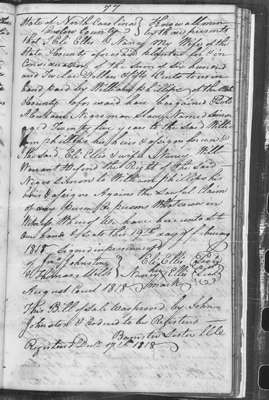 77
State of North Carolina } Know all men
Onslow County } by these presents
that I Eli Ellis & Nancy My Wife of the
State County aforesaid planter for & in
Consideration of the Sum of Six hundred
and Twelve Dollars fifty Cents to us in
hand paid by William phillips of the
County aforesaid have bargained & sold
Absolute a Negro man Slave Named
aged Twenty five years to the Said Willi
am phillips his heirs & assigns for ever &
the Said Eli Ellis & wife Nancy Will
Warrant & defend the Right of the Said
Negro to William phillips his
heirs & assigns Against the Lawful Claim
of any person or persons Whatsoever in
Witness Whereof We have hereunto set
Our hands & Seals this 19th day of February
1818
Signed in presence of
Jno Johnston } Eli Ellis {Seal}
Mills } Nancy X Ellis {Seal}
August Court 1818 mark
This Bill of Sale was proved by John
Johnston & Ordered to be Registered
Bannister Lester
Registered 1818